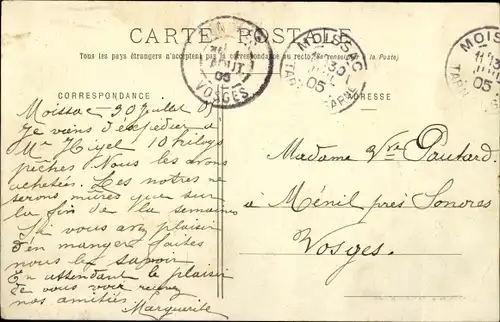 CARTE POSTALE
Tous les pays étrangers n'acceptent pas la correspondance au recto (se renseigner à la Poste)
CORRESPONDANCE
ADRESSE
AOUT
05
VOSGES
MOISSAC
30
JUIL
05
TARN
MOISSAC
05
TARN
Moissac - 30 Juillet 05
Je viens d'expédier à
Mr Higel 10 kilogs
pêches. Nous les avons
achetées. Les nôtres ne
serons mûres que sur
la fin de la semaine
Si vous avez plaisir
d'en manger faites
nous le savoir
En attendant le plaisir
de vous voir recevez
nos amitiés
Marguerite
Madame Vve
à Ménil près Senones
Vosges.